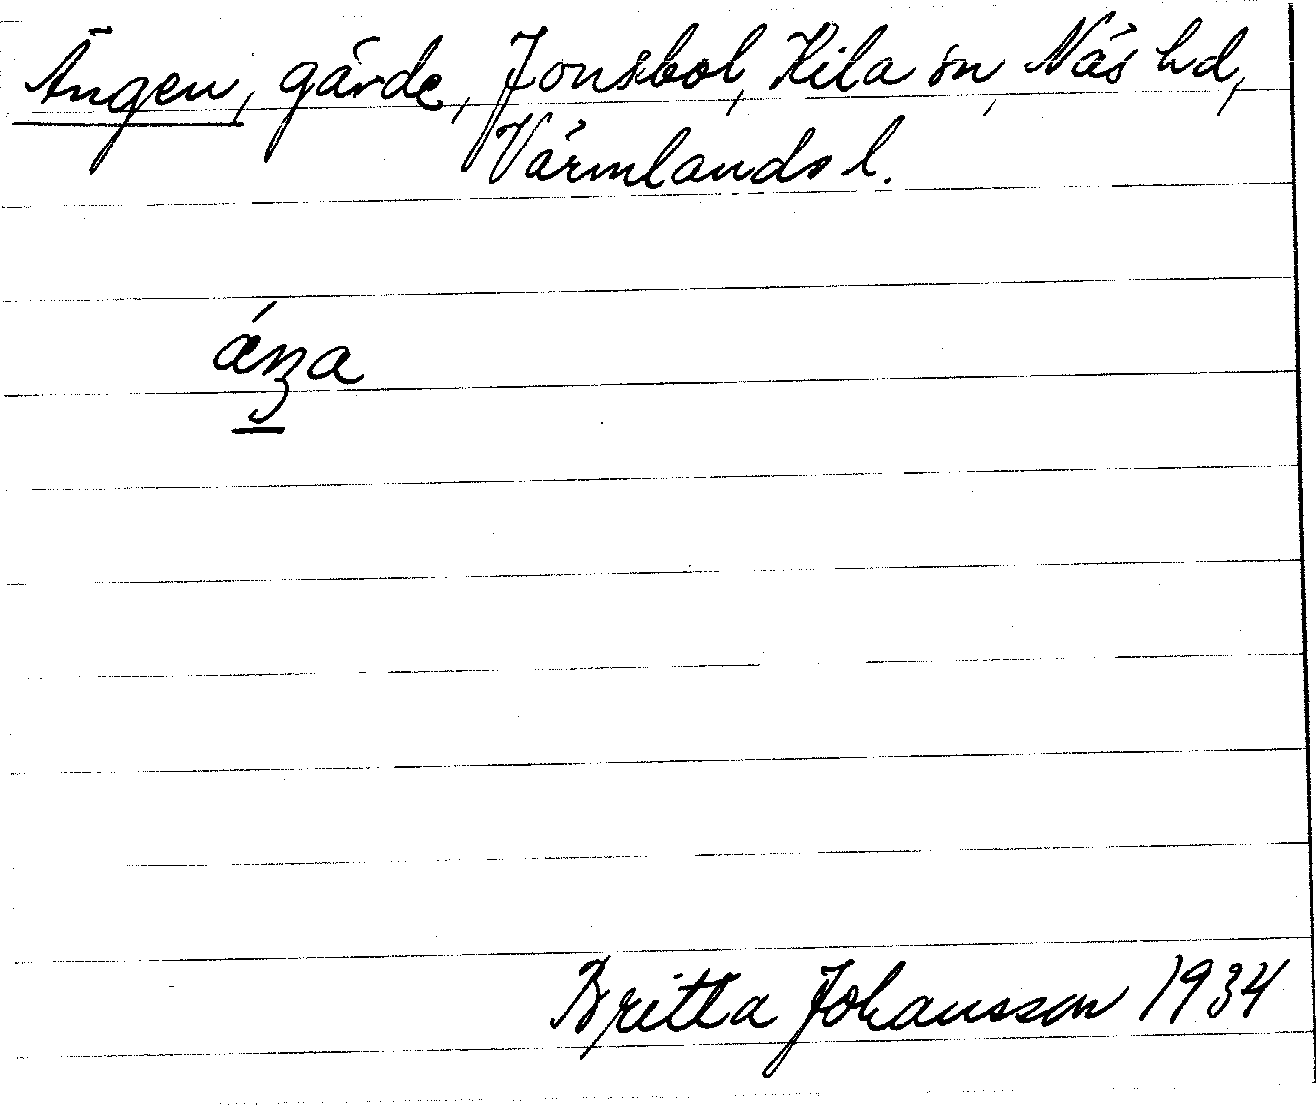 Ängen, gärde, Jonsbol, Kila sn, Näs hd,
Värmlands l.
Britta Johansson 1934